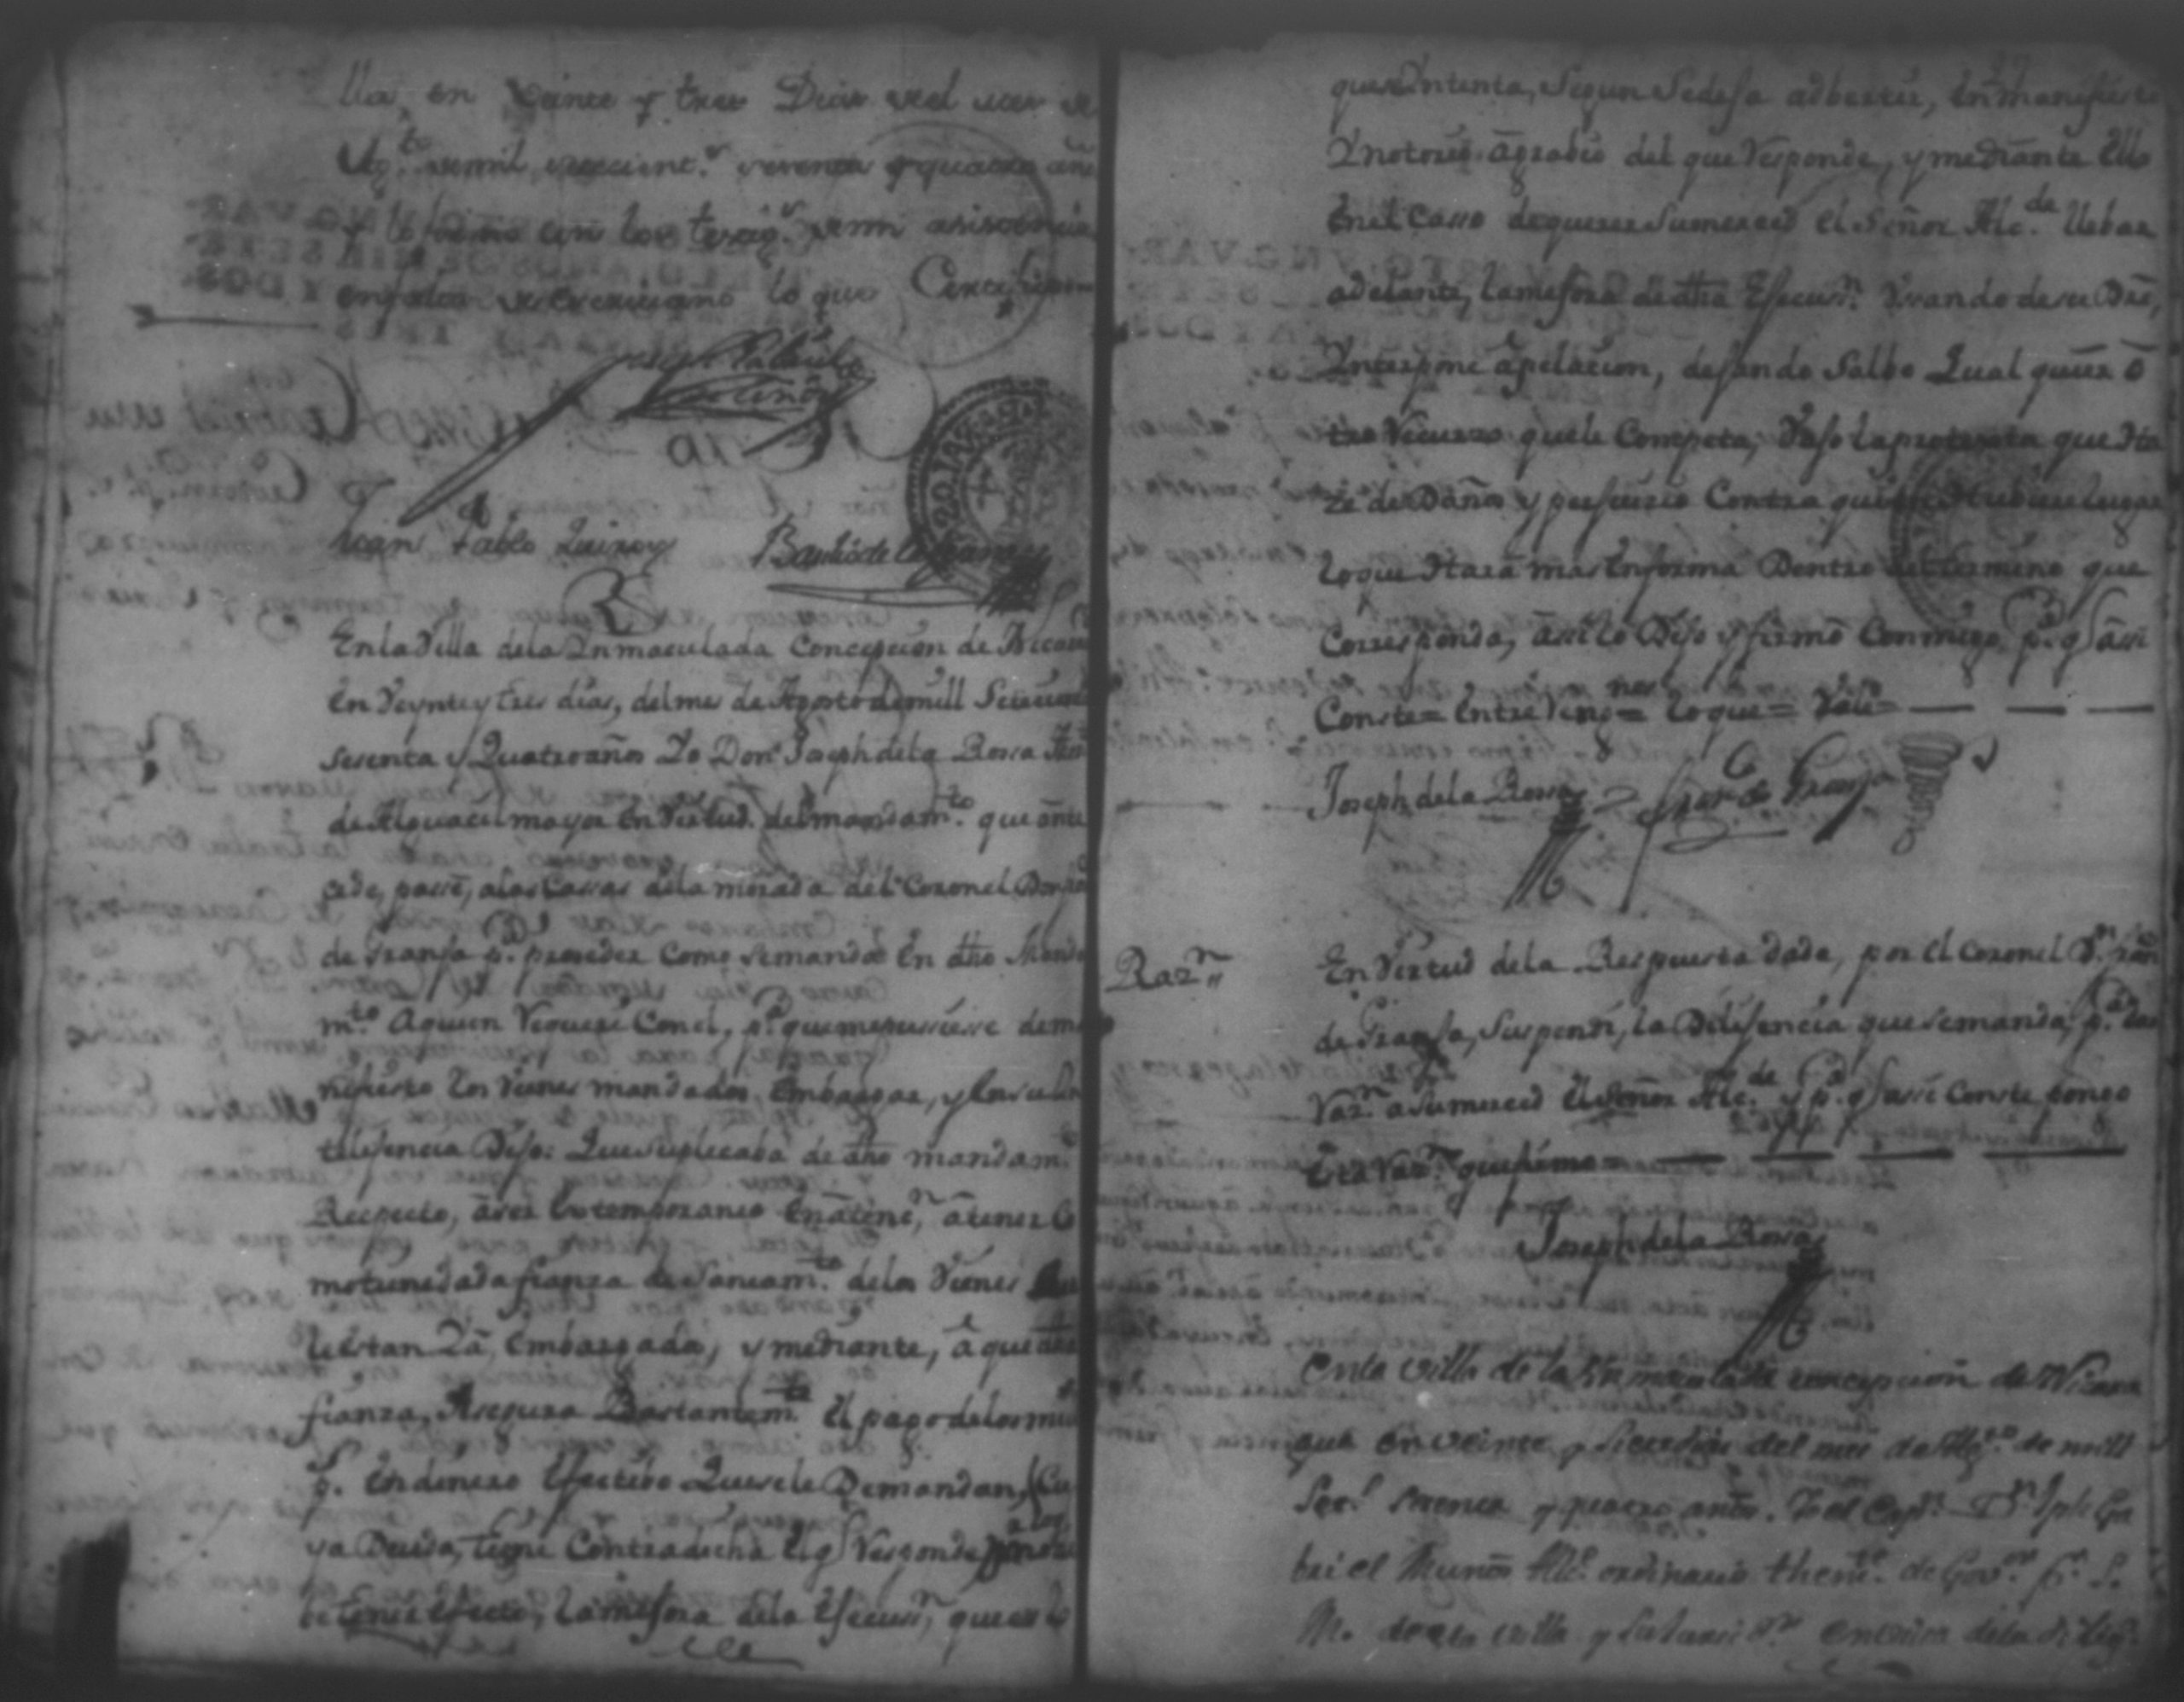 lla, en veinte y tres Dias del mes de
Ag.to de mil setecient.s sesenta y quatro añ
y lo firmo con los testig.s de mi asistencia
enfalta de escrivano lo que Certifico
Juan Pablo Quiroz Bautista de la
En la Villa dela Inmaculada Concepcion de Nicara
en Veynte y tres dias, del mes de Agosto de mill Setecien
sesenta y Quatro años Yo Don Joseph dela Rossa
de Alguacil mayor En Virtud del mandam.to que ante
cede, passé, alas Cassas dela morada del Coronel Don
de Granja p.a proceder Como se manda En dho Manda
m.to Aquien Requeri Con el, p.a que me pusiesse de ma
nifiesto los Vienes mandados Embargar, y
teligencia Dijo: Que suplicaba de dho mandam.to
Respecto, âser Extemporaneo En atenc.n â tener
dada fianza de Saneam.to delos Vienes
le estan Ya Embargada, y mediante, â que dha
fianza, Asegura Bastantem.te El pago delos mil
p.s En dinero Efectibo Que se le Demandan, Cu
ya Deuda, tiene Contradicha El q Responde
tener efecto, la mejora dela Ejecus.n que es lo
que Intenta, Segun Se deja adbertir, En manifiesto
Y notorio agrabio del que Responde, y mediante Ello
En el Casso de querer Sumerced el Señor Alc.de llebar
adelante, la mejora de dha Ejecus.n Usando de su Dro,
Interpone apelacion, dejando Salbo Qual quier ô
tro Recurzo que le Competa, Vajo la protexta que
ze de Daños y perjuicio Contra quien Hubiere lugar
lo que Hara mas En forma Dentro del termino que
Corresponda, assi lo Dijo y firmó Conmigo p.a q assi
Conste = Entre Reng.nes = lo que = Vale =
Joseph dela Rossa = Fran.co de Granja
Raz.n En Virtud dela Respuesta dada, por el Coronel D.n Fran
de Granja, Suspendi, la Dilijencia que se manda, p.a dar
Raz.n a Sumerced El Señor Alc.de y p.a q assi Conste pongo
Esta Raz.n que firmo =
Joseph dela Rossa
En la villa de la Inmaculada concepcion de Nicara
gua en veinte y siete dias del mes de Ag.to de mill
Set.s sesenta y quatro años. Yo el Cap.n D.n Jph Ga
briel Munos Alc.e ordinario thent.e de Gov.or p.r S.
M. desta villa y su Juris d.n en vista dela dilig.